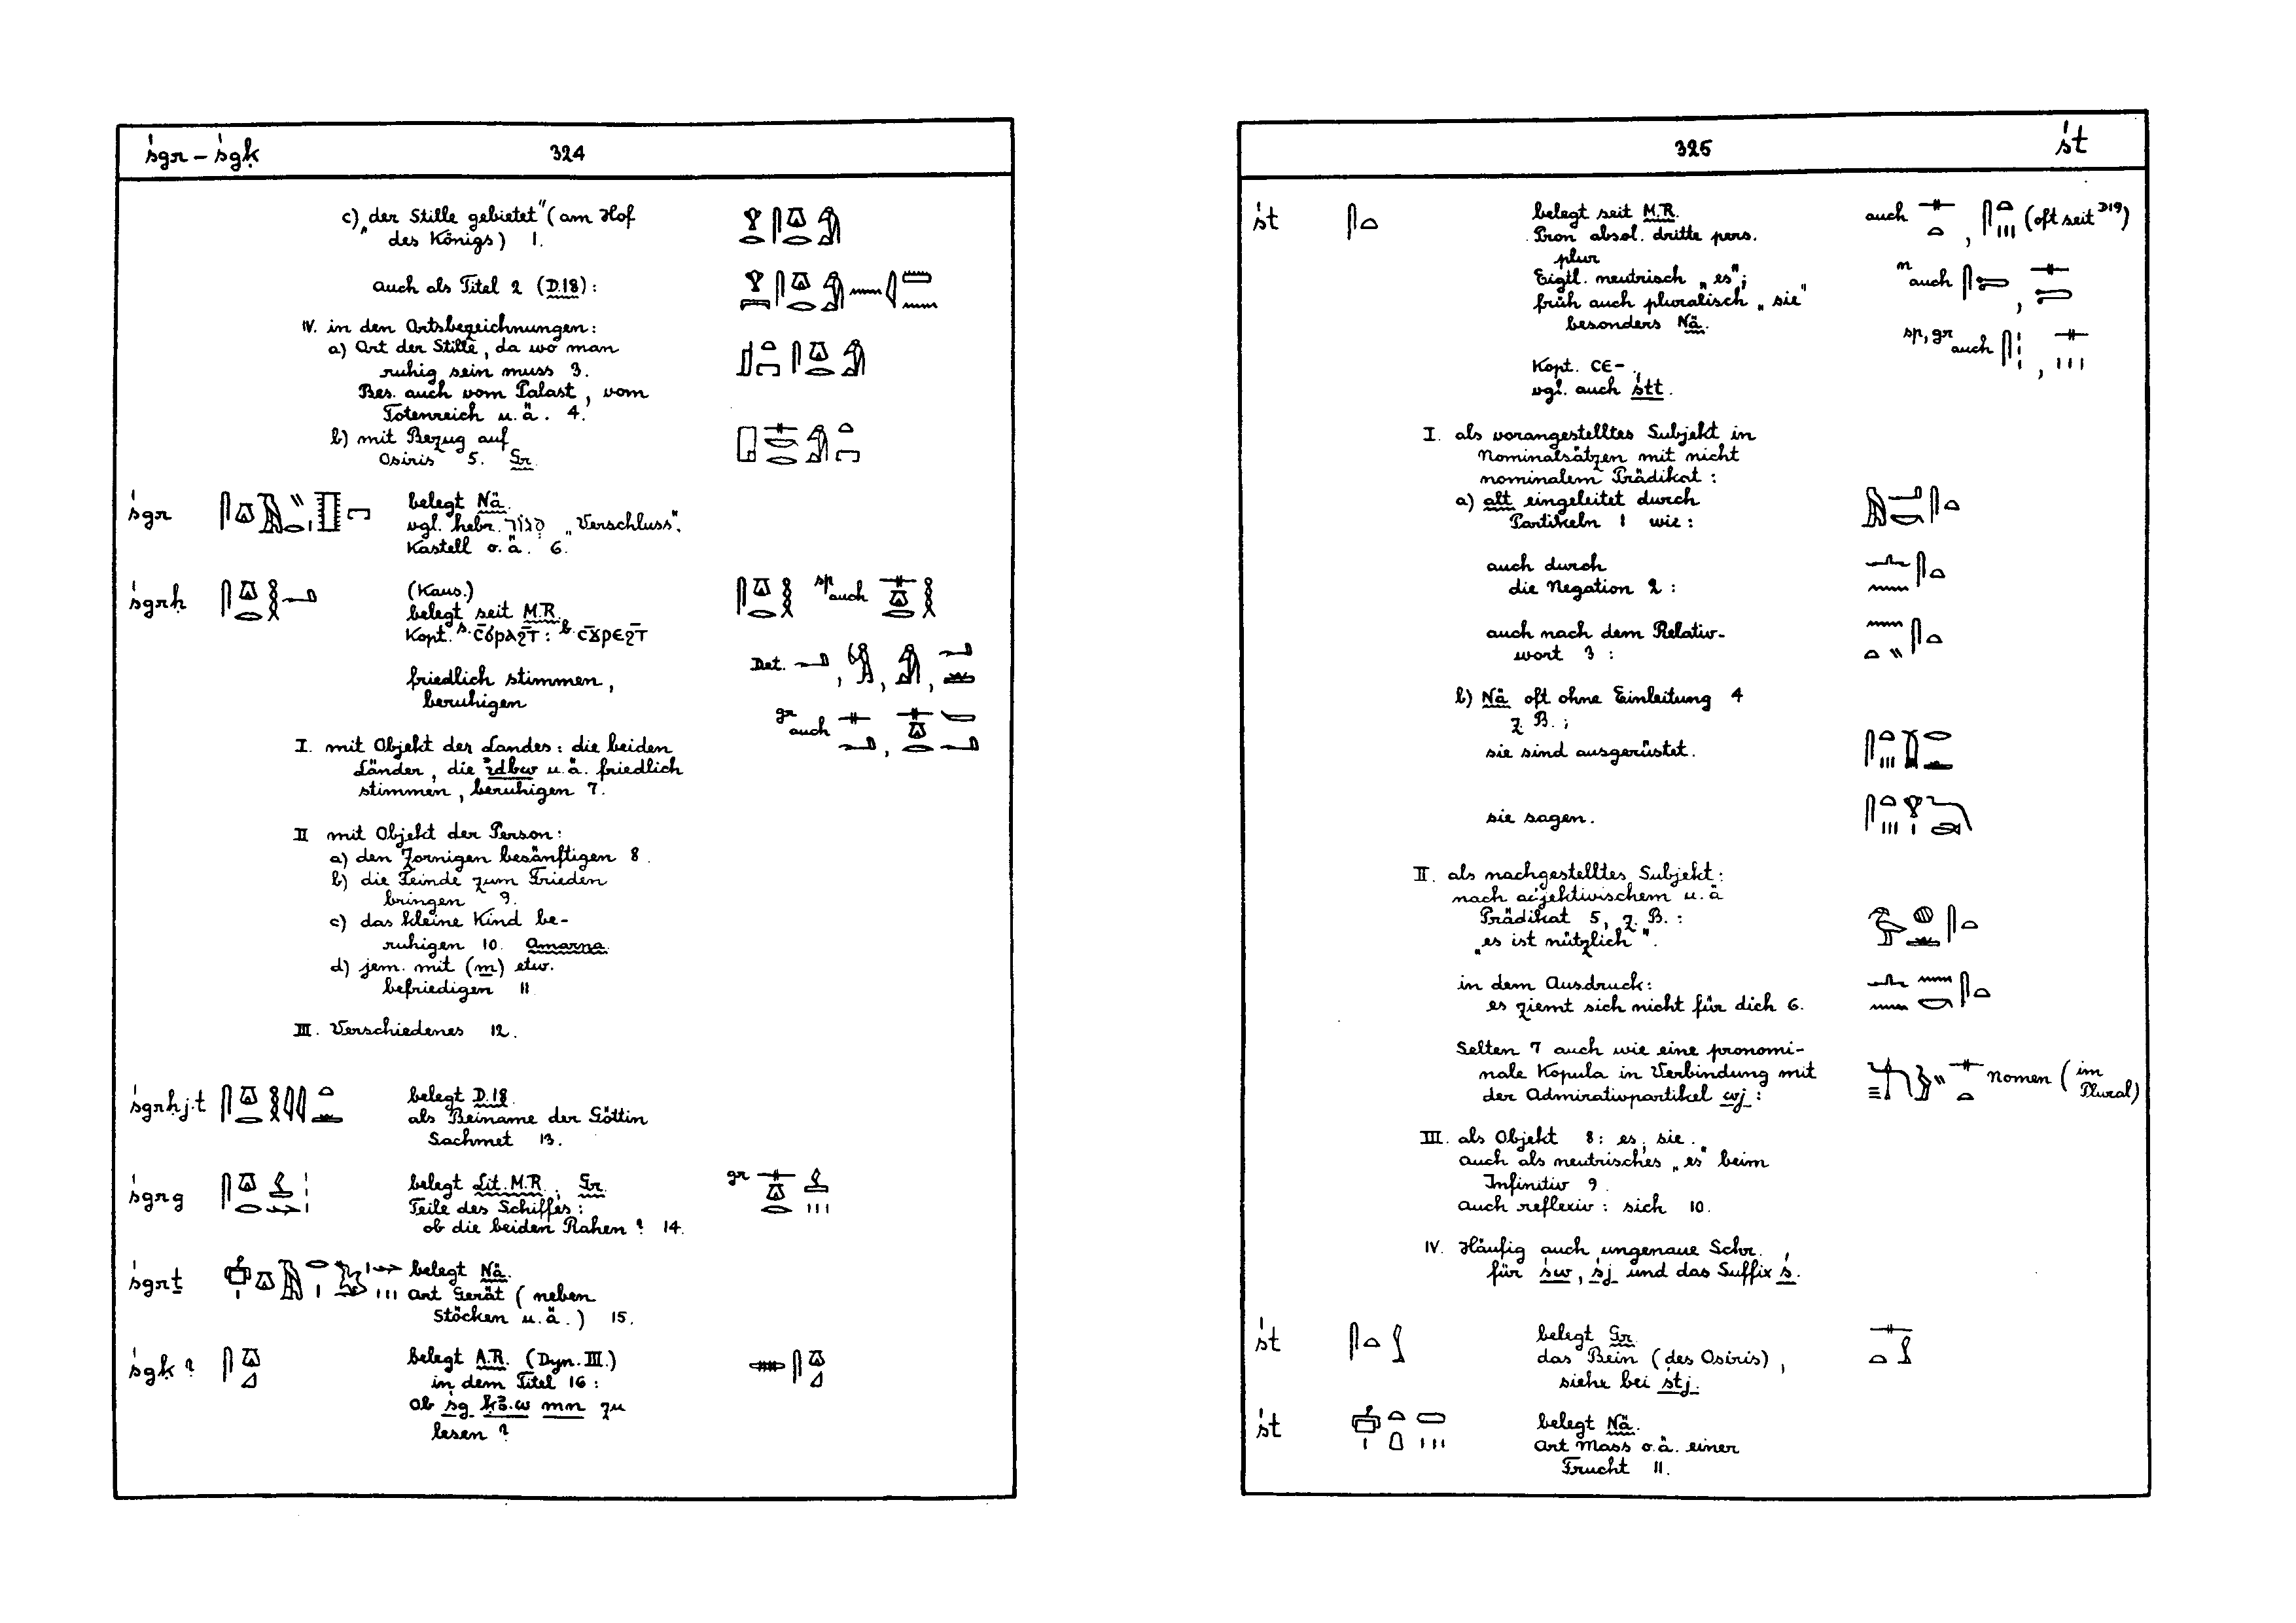 śgr – śgḳ 324
c) „der Stille gebietet" (am Hof
des Königs) 1.
auch als Titel 2 (D.18):
IV. in den Ortsbezeichnungen:
a) Ort der Stille, da wo man
ruhig sein muss 3.
Bes. auch vom Palast, vom
Totenreich u.ä. 4.
b) mit Bezug auf
Osiris 5. Gr.
śgr belegt Nä.
vgl. hebr. סגור „Verschluss".
Kastell o.ä. 6.
śgrḥ (Kaus.) sp auch
belegt seit M.R.
Kopt.
Det.
friedlich stimmen,
beruhigen
gr auch
I. mit Objekt der Landes: die beiden
Länder, die idbw u.ä. friedlich
stimmen, beruhigen 7.
II mit Objekt der Person:
a) den Zornigen besänftigen 8.
b) die Feinde zum Frieden
bringen 9.
c) das kleine Kind be-
ruhigen 10. Amarna.
d) jem. mit (m) etw.
befriedigen 11
III. Verschiedenes 12.
śgrḥj.t belegt D.18.
als Beiname der Göttin
Sachmet 13.
śgrg belegt Lit. M.R., Gr. gr
Teile des Schiffes:
ob die beiden Rahen? 14.
śgrṯ belegt Nä.
Art Gerät (neben
Stöcken u.ä.) 15.
śgḳ? belegt A.R. (Dyn. III.)
in dem Titel 16:
Ob śg ḳꜣ.w mn zu
lesen?
325 śt
śt belegt seit M.R. auch , (oft seit D19)
Pron absol. dritte pers.
plur
Eigtl. neutrisch „es"; n auch ,
früh auch pluralisch „sie"
besonders Nä.
sp, gr auch ,
Kopt. ⲥⲉ-.
vgl. auch śtt.
I. als vorangestelltes Subjekt in
Nominalsätzen mit nicht
nominalem Prädikat:
a) alt eingeleitet durch
Partikeln 1 wie:
auch durch
die Negation 2:
auch nach dem Relativ-
wort 3:
b) Nä oft ohne Einleitung 4
z. B.;
sie sind ausgerüstet.
sie sagen.
II. als nachgestelltes Subjekt:
nach adjektivischem u.ä
Prädikat 5, z. B.:
„es ist nützlich".
in dem Ausdruck:
es ziemt sich nicht für dich 6.
Selten 7 auch wie eine pronomi-
nale Kopula in Verbindung mit
der Admirativpartikel wj: nomen (im Plural)
III. als Objekt 8: es, sie.
auch als neutrisches „es" beim
Infinitiv 9.
auch reflexiv: sich 10.
IV. Häufig auch ungenaue Schr.
für św, śj und das Suffix ś.
śt belegt Gr.
das Bein (des Osiris),
siehe bei śtj.
śt belegt Nä.
Art Mass o.ä. einer
Frucht 11.